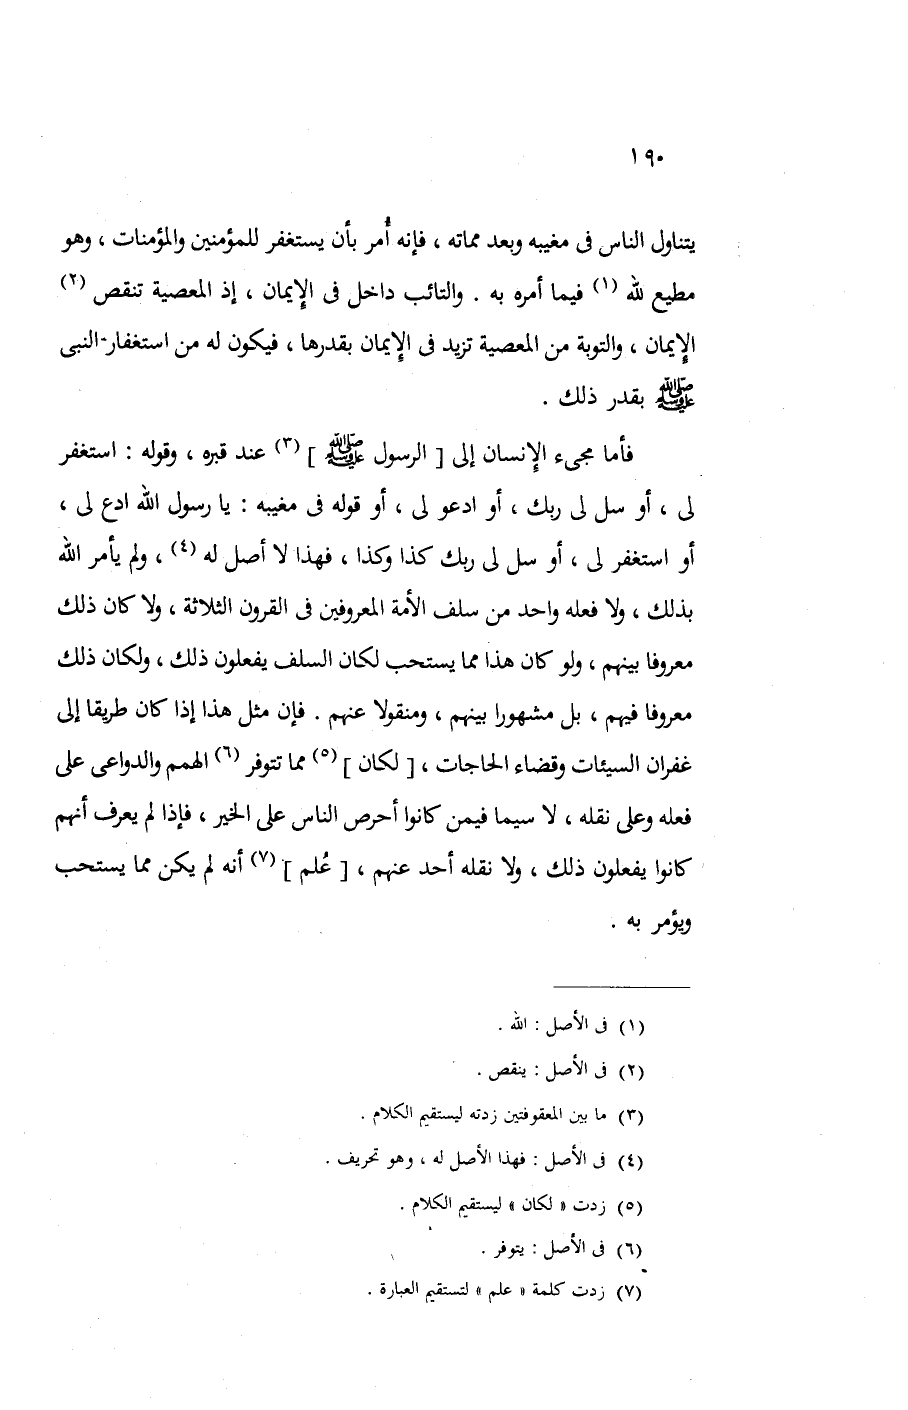 ١٩٠
يتناول الناس فى مغيبه وبعد مماته ، فإنه أُمر بأن يستغفر للمؤمنين والمؤمنات ، وهو
مطيع لله (١) فيما أمره به . والتائب داخل فى الإيمان ، إذ المعصية تنقص (٢)
الإيمان ، والتوبة من المعصية تزيد فى الإيمان بقدرها ، فيكون له من استغفار النبى
ﷺ بقدر ذلك .
فأما مجىء الإنسان إلى [ الرسول ﷺ ] (٣) عند قبره ، وقوله : استغفر
لى ، أو سل لى ربك ، أو ادعو لى ، أو قوله فى مغيبه : يا رسول الله ادع لى ،
أو استغفر لى ، أو سل لى ربك كذا وكذا ، فهذا لا أصل له (٤) ، ولم يأمر الله
بذلك ، ولا فعله واحد من سلف الأمة المعروفين فى القرون الثلاثة ، ولا كان ذلك
معروفا بينهم ، ولو كان هذا مما يستحب لكان السلف يفعلون ذلك ، ولكان ذلك
معروفا فيهم ، بل مشهورا بينهم ، ومنقولا عنهم . فإن مثل هذا إذا كان طريقا إلى
غفران السيئات وقضاء الحاجات ، [ لكان ] (٥) مما تتوفر (٦) الهمم والدواعى على
فعله وعلى نقله ، لا سيما فيمن كانوا أحرص الناس على الخير ، فإذا لم يعرف أنهم
كانوا يفعلون ذلك ، ولا نقله أحد عنهم ، [ عُلم ] (٧) أنه لم يكن مما يستحب
ويؤمر به .
(١) فى الأصل : الله .
(٢) فى الأصل : ينقص .
(٣) ما بين المعقوفتين زدته ليستقيم الكلام .
(٤) فى الأصل : فهذا الأصل له ، وهو تحريف .
(٥) زدت « لكان » ليستقيم الكلام .
(٦) فى الأصل : يتوفر .
(٧) زدت كلمة « علم » لتستقيم العبارة .